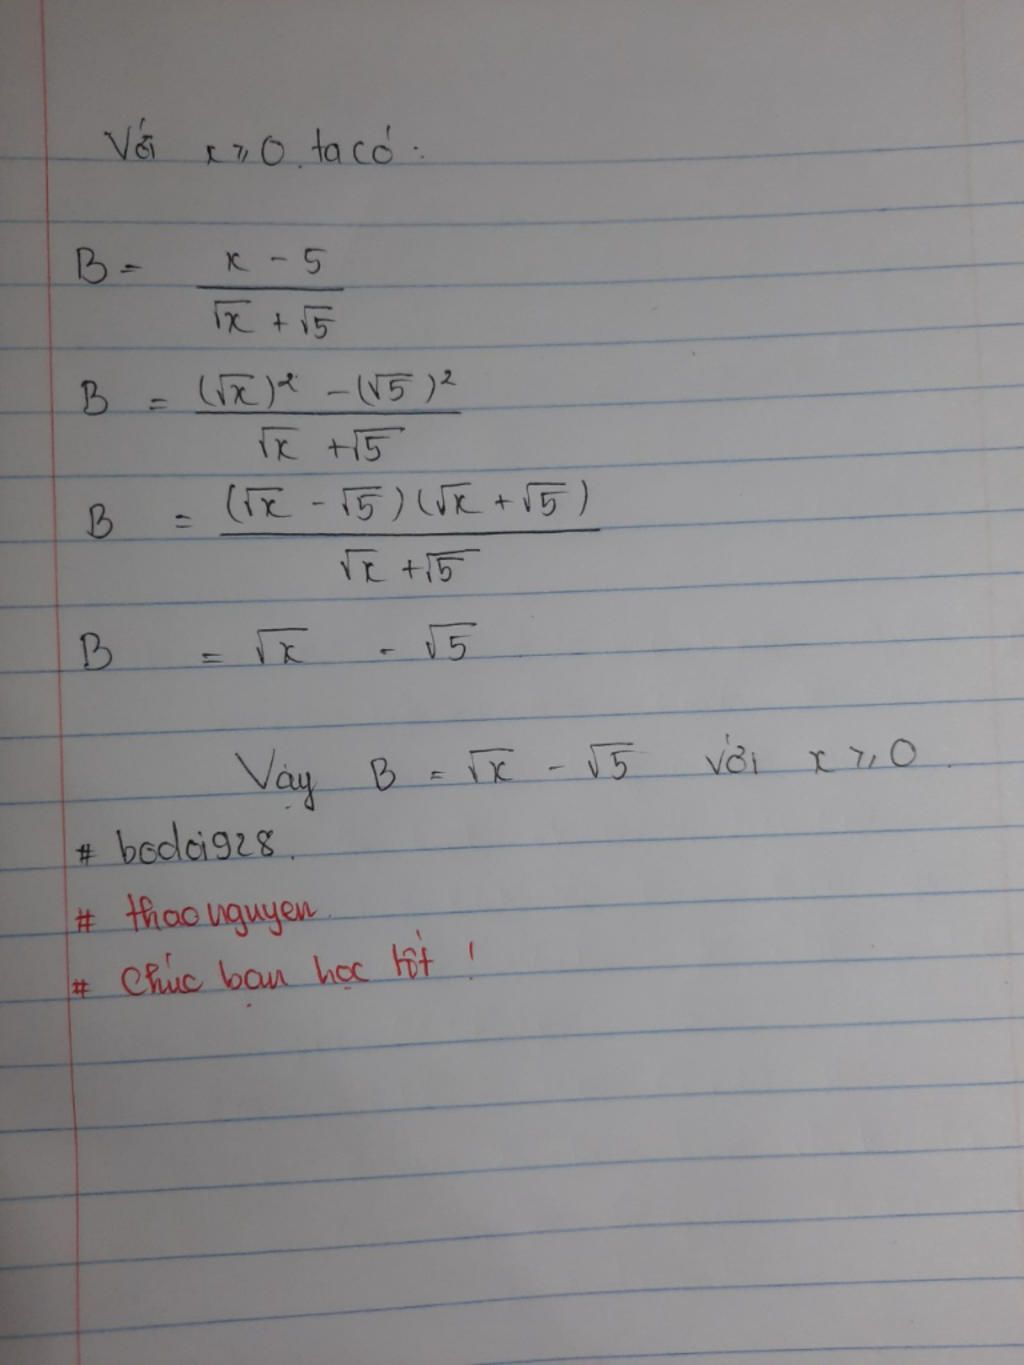 Với x ⩾ 0. ta có :
B = x - 5 / √x + √5
B = (√x)² - (√5)² / √x + √5
B = (√x - √5)(√x + √5) / √x + √5
B = √x - √5
Vậy B = √x - √5 với x ⩾ 0.
# bodoi928.
# thaonguyen.
# Chúc bạn học tốt !